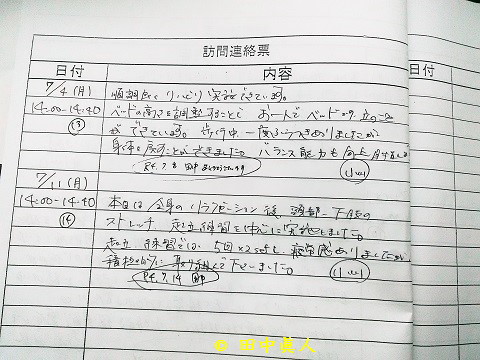 訪問連絡票
日付 内容
7/4(月) 順調にリハビリ実施できています。
14:00-14:40 ベッドの高さを調整することで お一人でベッドから立つこと
(13) ができています。 一度ふらつきありましたが
身体を戻すことができました。 バランス能力も向上
R4.7.8 田中
7/11(月)
14:00-14:40 本日は全身のリラクゼーション後、頭部〜下肢の
(14) ストレッチ、起立練習を中心に実施しました。
起立練習では、5回×2setし、疲労感ありましたが
積極的に取り組んで下さいました。
R4.7.14 田中